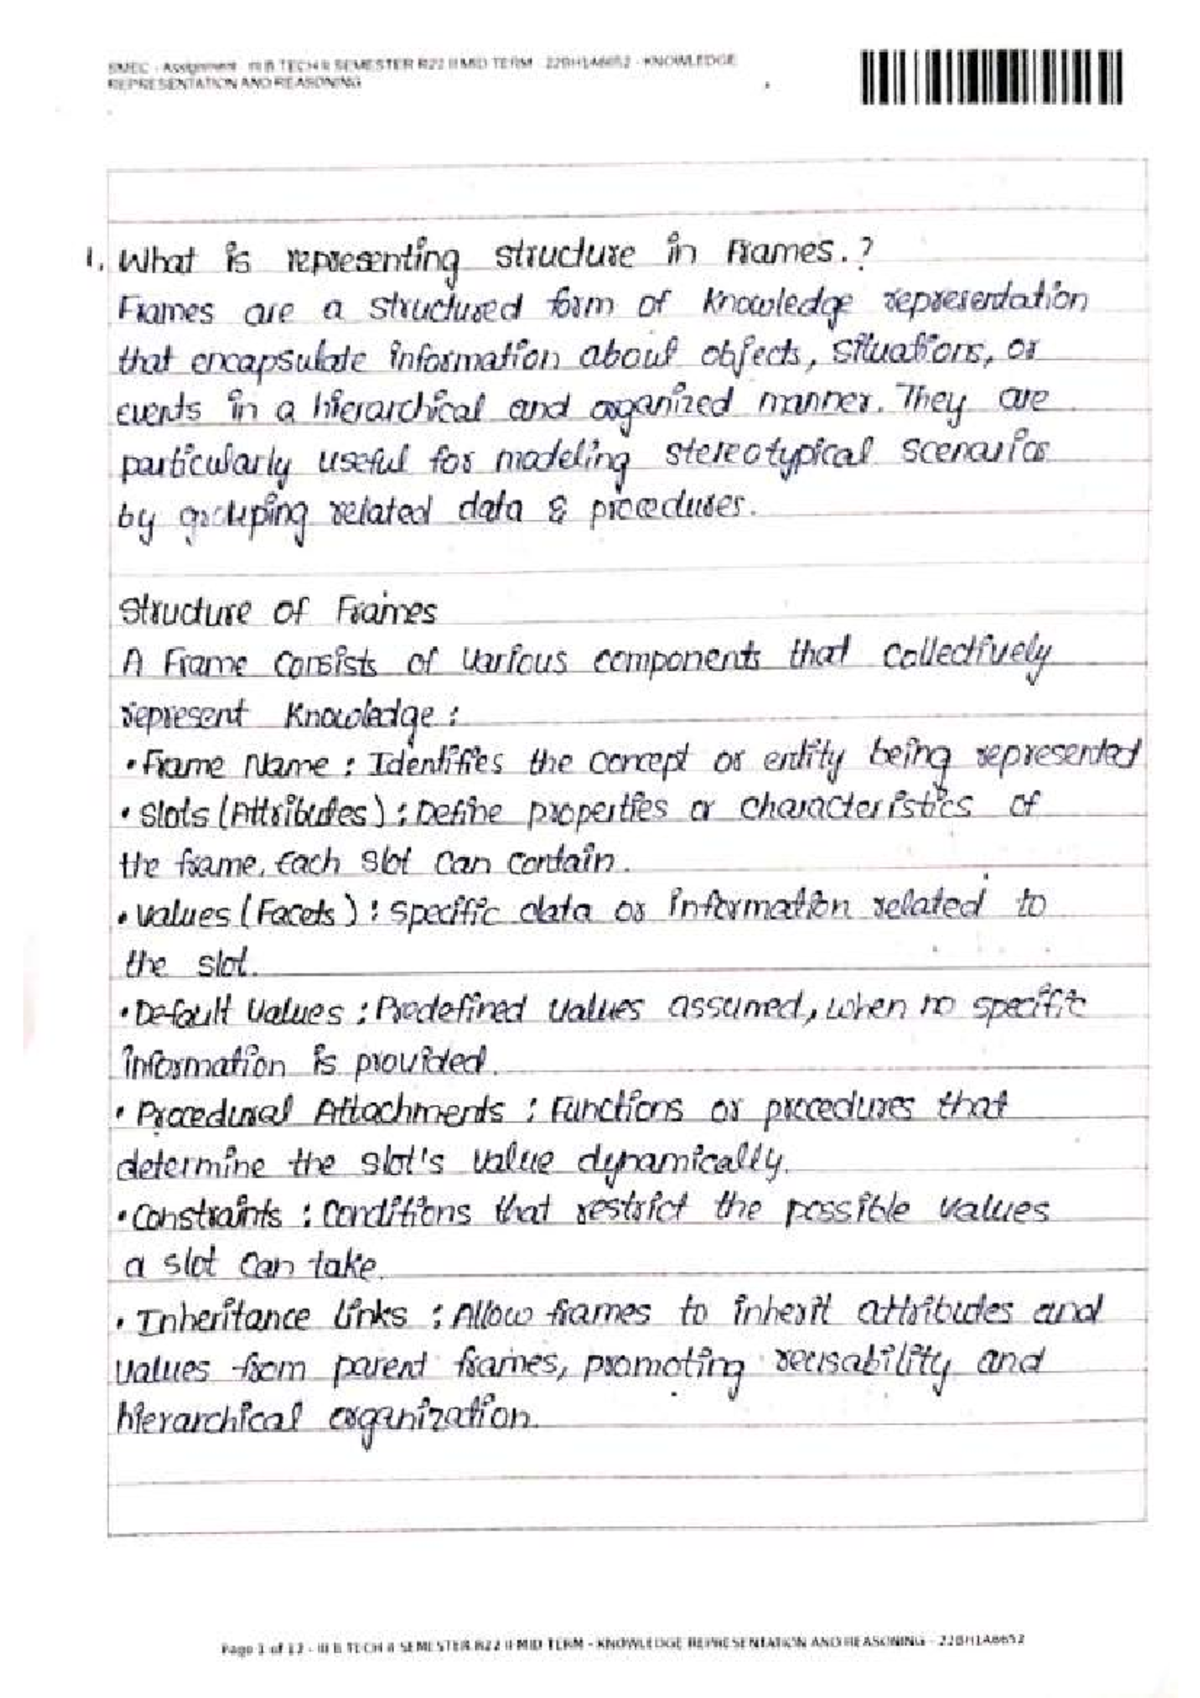 SMEC - Assignment - III B TECH II SEMESTER R22 II MID TERM - - KNOWLEDGE
REPRESENTATION AND REASONING
1. What is representing structure in Frames.?
Frames are a structured form of knowledge representation
that encapsulate information about objects, situations, or
events in a hierarchical and organized manner. They are
particularly useful for modeling stereotypical scenarios
by grouping related data & procedures.
Structure of Frames
A Frame consists of various components that collectively
represent Knowledge :
• Frame Name : Identifies the concept or entity being represented
• Slots (Attributes) : Define properties or characteristics of
the frame. Each slot can contain.
• Values (Facets) : specific data or information related to
the slot.
• Default Values : Predefined values assumed, when no specific
information is provided.
• Procedural Attachments : Functions or procedures that
determine the slot's value dynamically.
• Constraints : Conditions that restrict the possible values
a slot can take.
• Inheritance links : Allow frames to inherit attributes and
values from parent frames, promoting reusability and
hierarchical organization.
Page 1 of 12 - III B TECH II SEMESTER R22 II MID TERM - KNOWLEDGE REPRESENTATION AND REASONING -